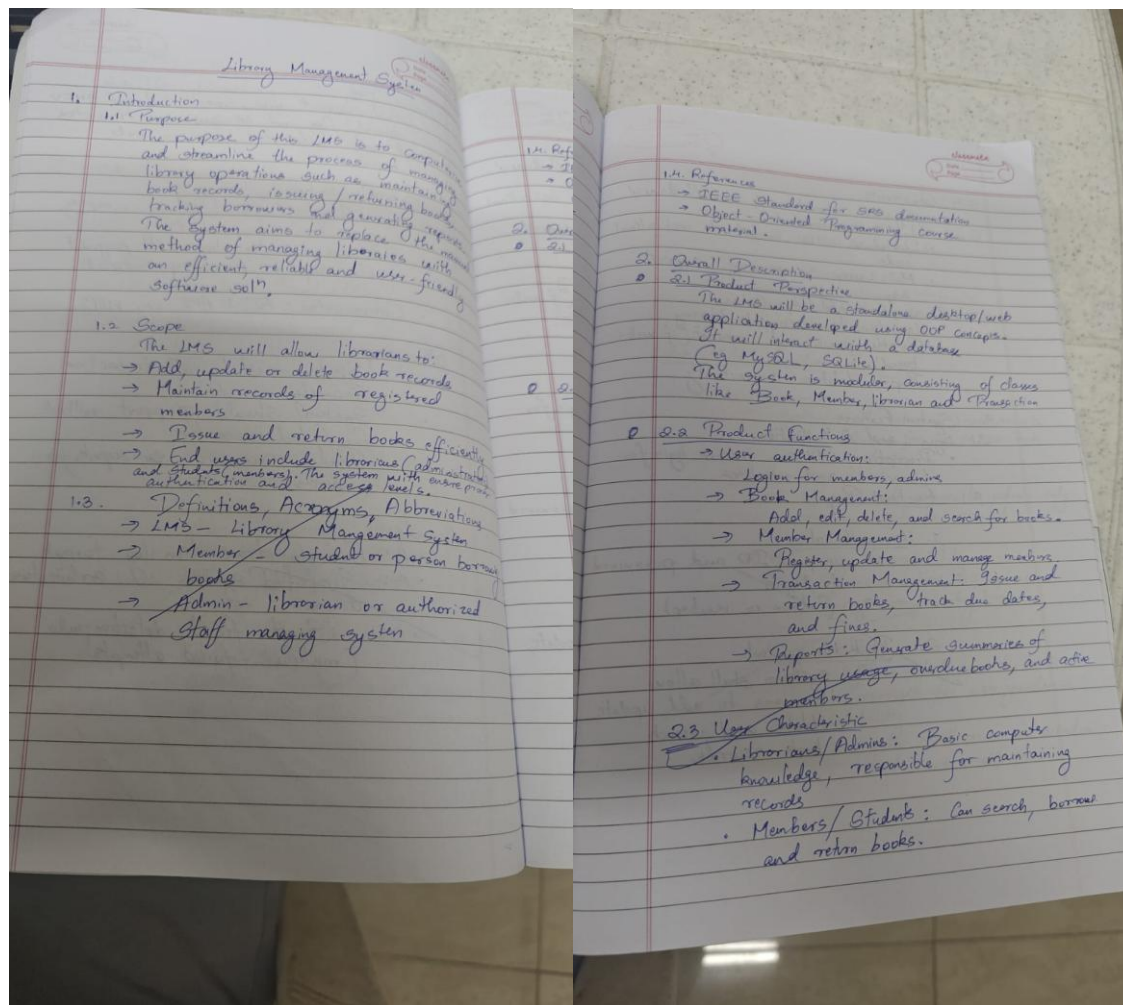 Library Management System
1. Introduction
1.1 Purpose
The purpose of this LMS is to
and streamline the process of managing
library operations such as maintaining
book records, issuing / returning books,
tracking borrowers and genrating reports
The system aims to replace the
method of managing liberaies with
an efficient, reliable and user-friendly
software solⁿ.
1.2 Scope
The LMS will allow librarians to:
→ Add, update or delete book records
→ Maintain records of registered
members
→ Issue and return books efficiently
→ End users include librarians (administrators)
and students (members). The system with ensure
authentication and access levels.
1.3. Definitions, Acronyms, Abbreviations
→ LMS - Library Mangement System
→ Member - student or person
books
→ Admin - librarian or authorized
Staff managing system
1.4. Ref
2.
2.1
Classmate
Date
Page
1.4. References
→ IEEE Standard for SRS documntation
→ Object-Oriented Programming course
material.
2. Overall Description
2.1 Product Perspective
The LMS will be a standalone desktop/web
application developed using OOP concepts.
It will interact with a database
(eg MySQL, SQLite).
The system is modular, consisting of classes
like Book, Member, librarian and Transaction
2.2 Product Functions
→ User authentication:
for members, admins
→ Book Management:
Add, edit, delete, and search for books.
→ Member Management:
Register, update and manage members
→ Transaction Management: Issue and
return books, track due dates,
and fines.
→ Reports: Generate summeries of
library usage, overdue books, and active
members.
2.3 User Characteristic
• Librarians/Admins: Basic computer
knowledge, responsible for maintaining
records
• Members/Students: Can search, borrow
and return books.